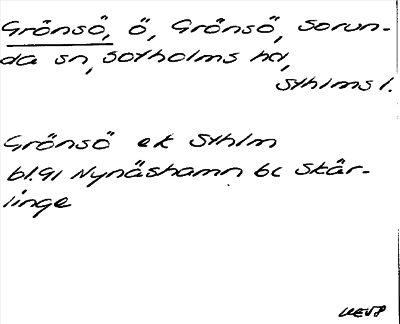 Grönsö, ö, Grönsö, Sorun-
da sn, Sotholms hd,
Sthlms l.
Grönsö ek Sthlm
bl. 91 Nynäshamn bc Skär-
linge